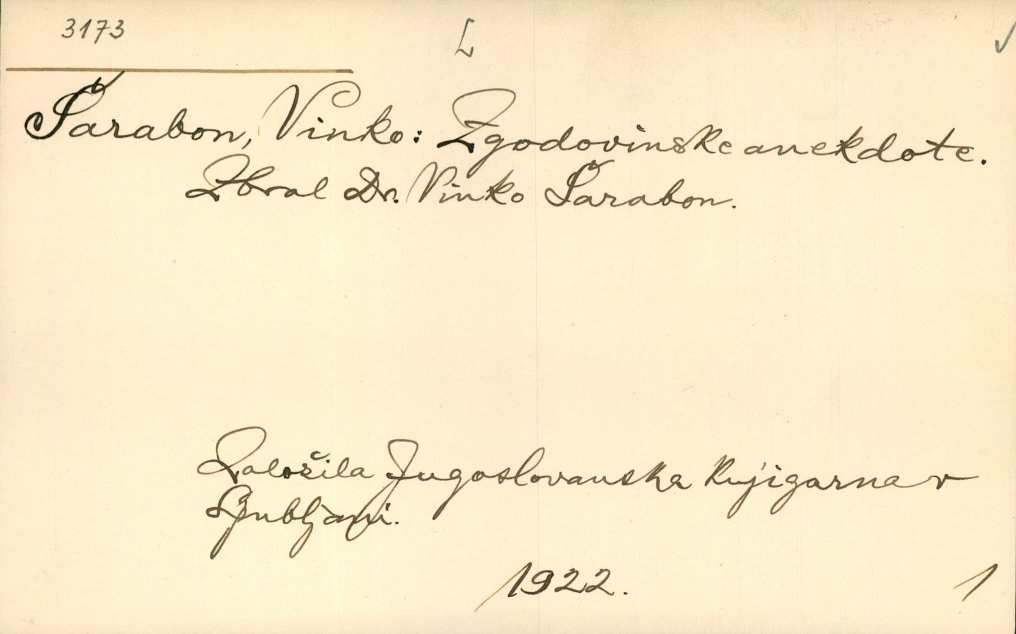 3173
L
✓
Šarabon, Vinko: Zgodovinske anekdote.
Zbral Dr. Vinko Šarabon.
Založila Jugoslovanska knjigarna v
Ljubljani.
1922.
1